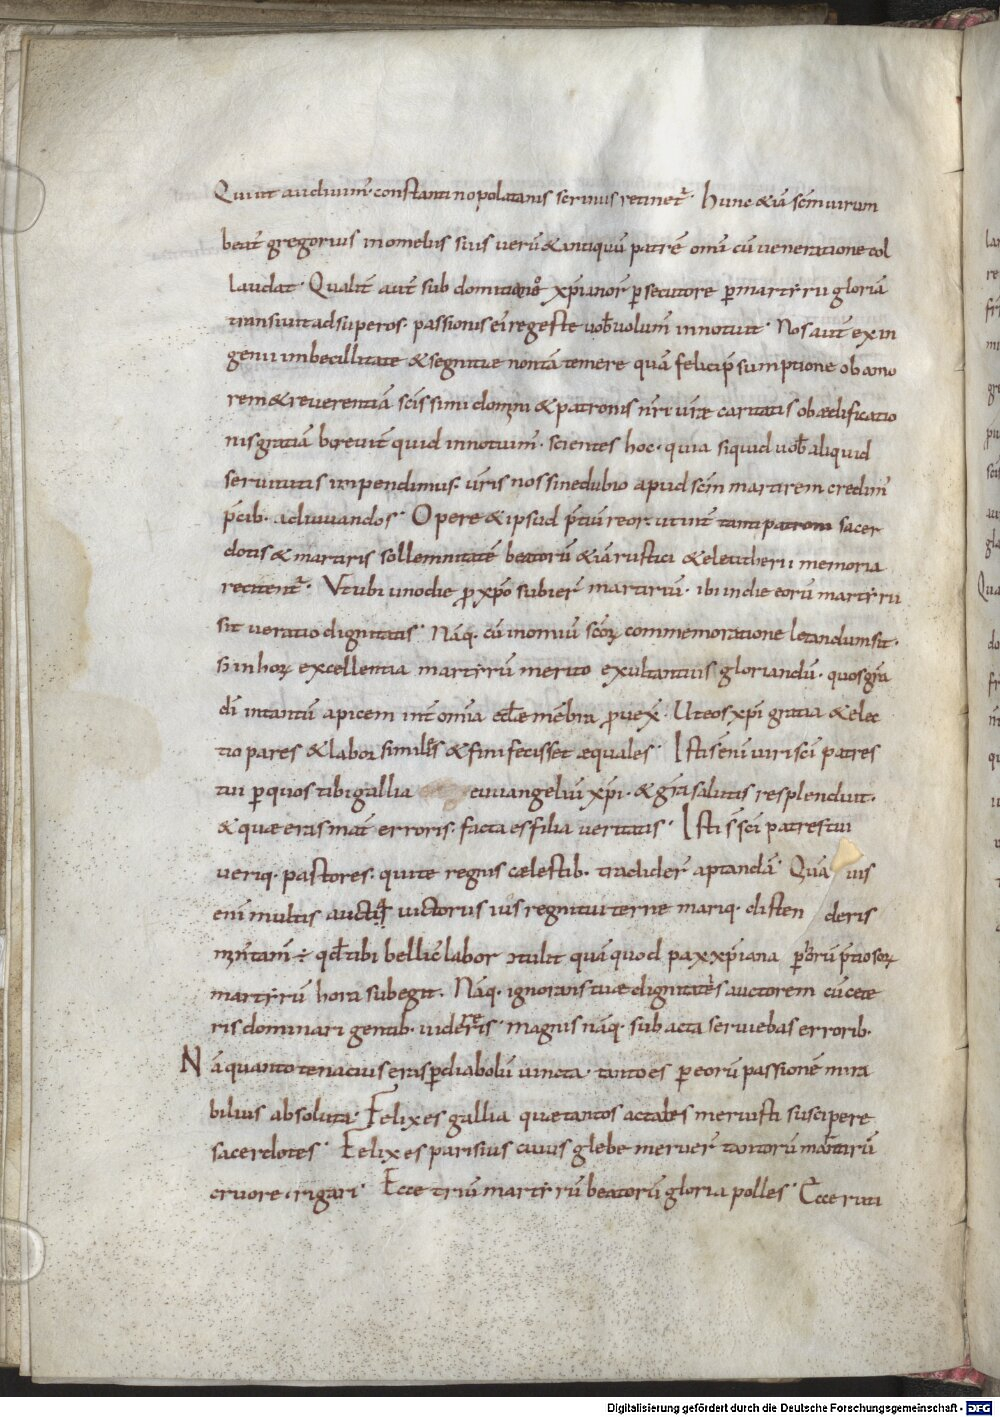 Qui ut audiuim̄· constantinopolitanis scriniis retinet᷑· hunc &iā scm̄ uirum
beat᷒ gregorius in omeliis suis uerū & antiquū patrē omī cū ueneratione col
laudat· Qualit̄ aut̄ sub domitiano xp̄ianor̄ p̄secutore p̄ martyrii gloriā
transiuit ad superos· passionis ei᷒ regeste uob̄ uolum̄ innotuit· Nos aut̄ ex in
genii imbecillitate & segnitiae non tā temere quā felici p̄sumptione ob amo
rem & reuerentiā scīssimi domni & patroni n̄ri ur̄ae caritatis ob aedificatio
nis gratiā breuit̄ quid innotuim̄· scientes hoc· quia siquid uob̄ aliquid
seruitutis impendimus· ur̄is nos sine dubio apud scm̄ martirem credim̄
p̄cib· adiuuandos· Opere & ipsud p̄tiū reor· ut int̄ tanti patroni sacer
dotis & martiris sollemnitatē beatorū &iā rustici & eleutherii memoria
recitent᷑· Vt ubi uno die p̄ xp̄o subier̄ martiriū· ibi in die eorū martyrii
sit ueratio dignitatis· Nāq· cū in omiū scōrꝝ commemoratione letandum sit·
si in horꝝ excellentia martyrū merito exultantius gloriandū· quos gr̄a
dī in tantū apicem int̄ omīa eccl̄ae mēbra p̄uex̄· Ut eos xp̄i gratia & elec
tio pares & labor similes & finis fecisset aequales· Isti s̄ enī uiri scī patres
tui p̄ quos tibi gallia euuangeliū xp̄i· & gr̄a salutis resplenduit·
& quae eras mat̄ erroris· facta es filia ueritatis· Isti s̄ scī patres tui
ueriq· pastores· qui te regnis caelestib· tradider̄ aptandā· Quā uis
enī multis aucta uictoriis ius regni tui terrae mariq· disten deris
min᷒ tam̄ ÷ qd̄ tibi bellic᷒ labor ɔtulit quā quod pax xp̄iana p̄ horū p̄tiosorꝝ
martyrū hora subegit· Nāq· ignorans tuae dignitatis auctorem cū cete
ris dominari gentib· uidereris· magnis nāq· subacta seruiebas errorib·
Nā quanto tenacius eras p̄ diabolū uincta· tanto es p̄ eorū passionē mira
bilius absoluta· Felix es gallia quae tantos ac tales meruisti suscipere
sacerdotes· Felix es parisius cuius glebe meruer̄ tantorū martirū
cruore irrigari· Ecce triū martyrū beatorū gloria polles· Ecce ruti
Digitalisierung gefördert durch die Deutsche Forschungsgemeinschaft - DFG